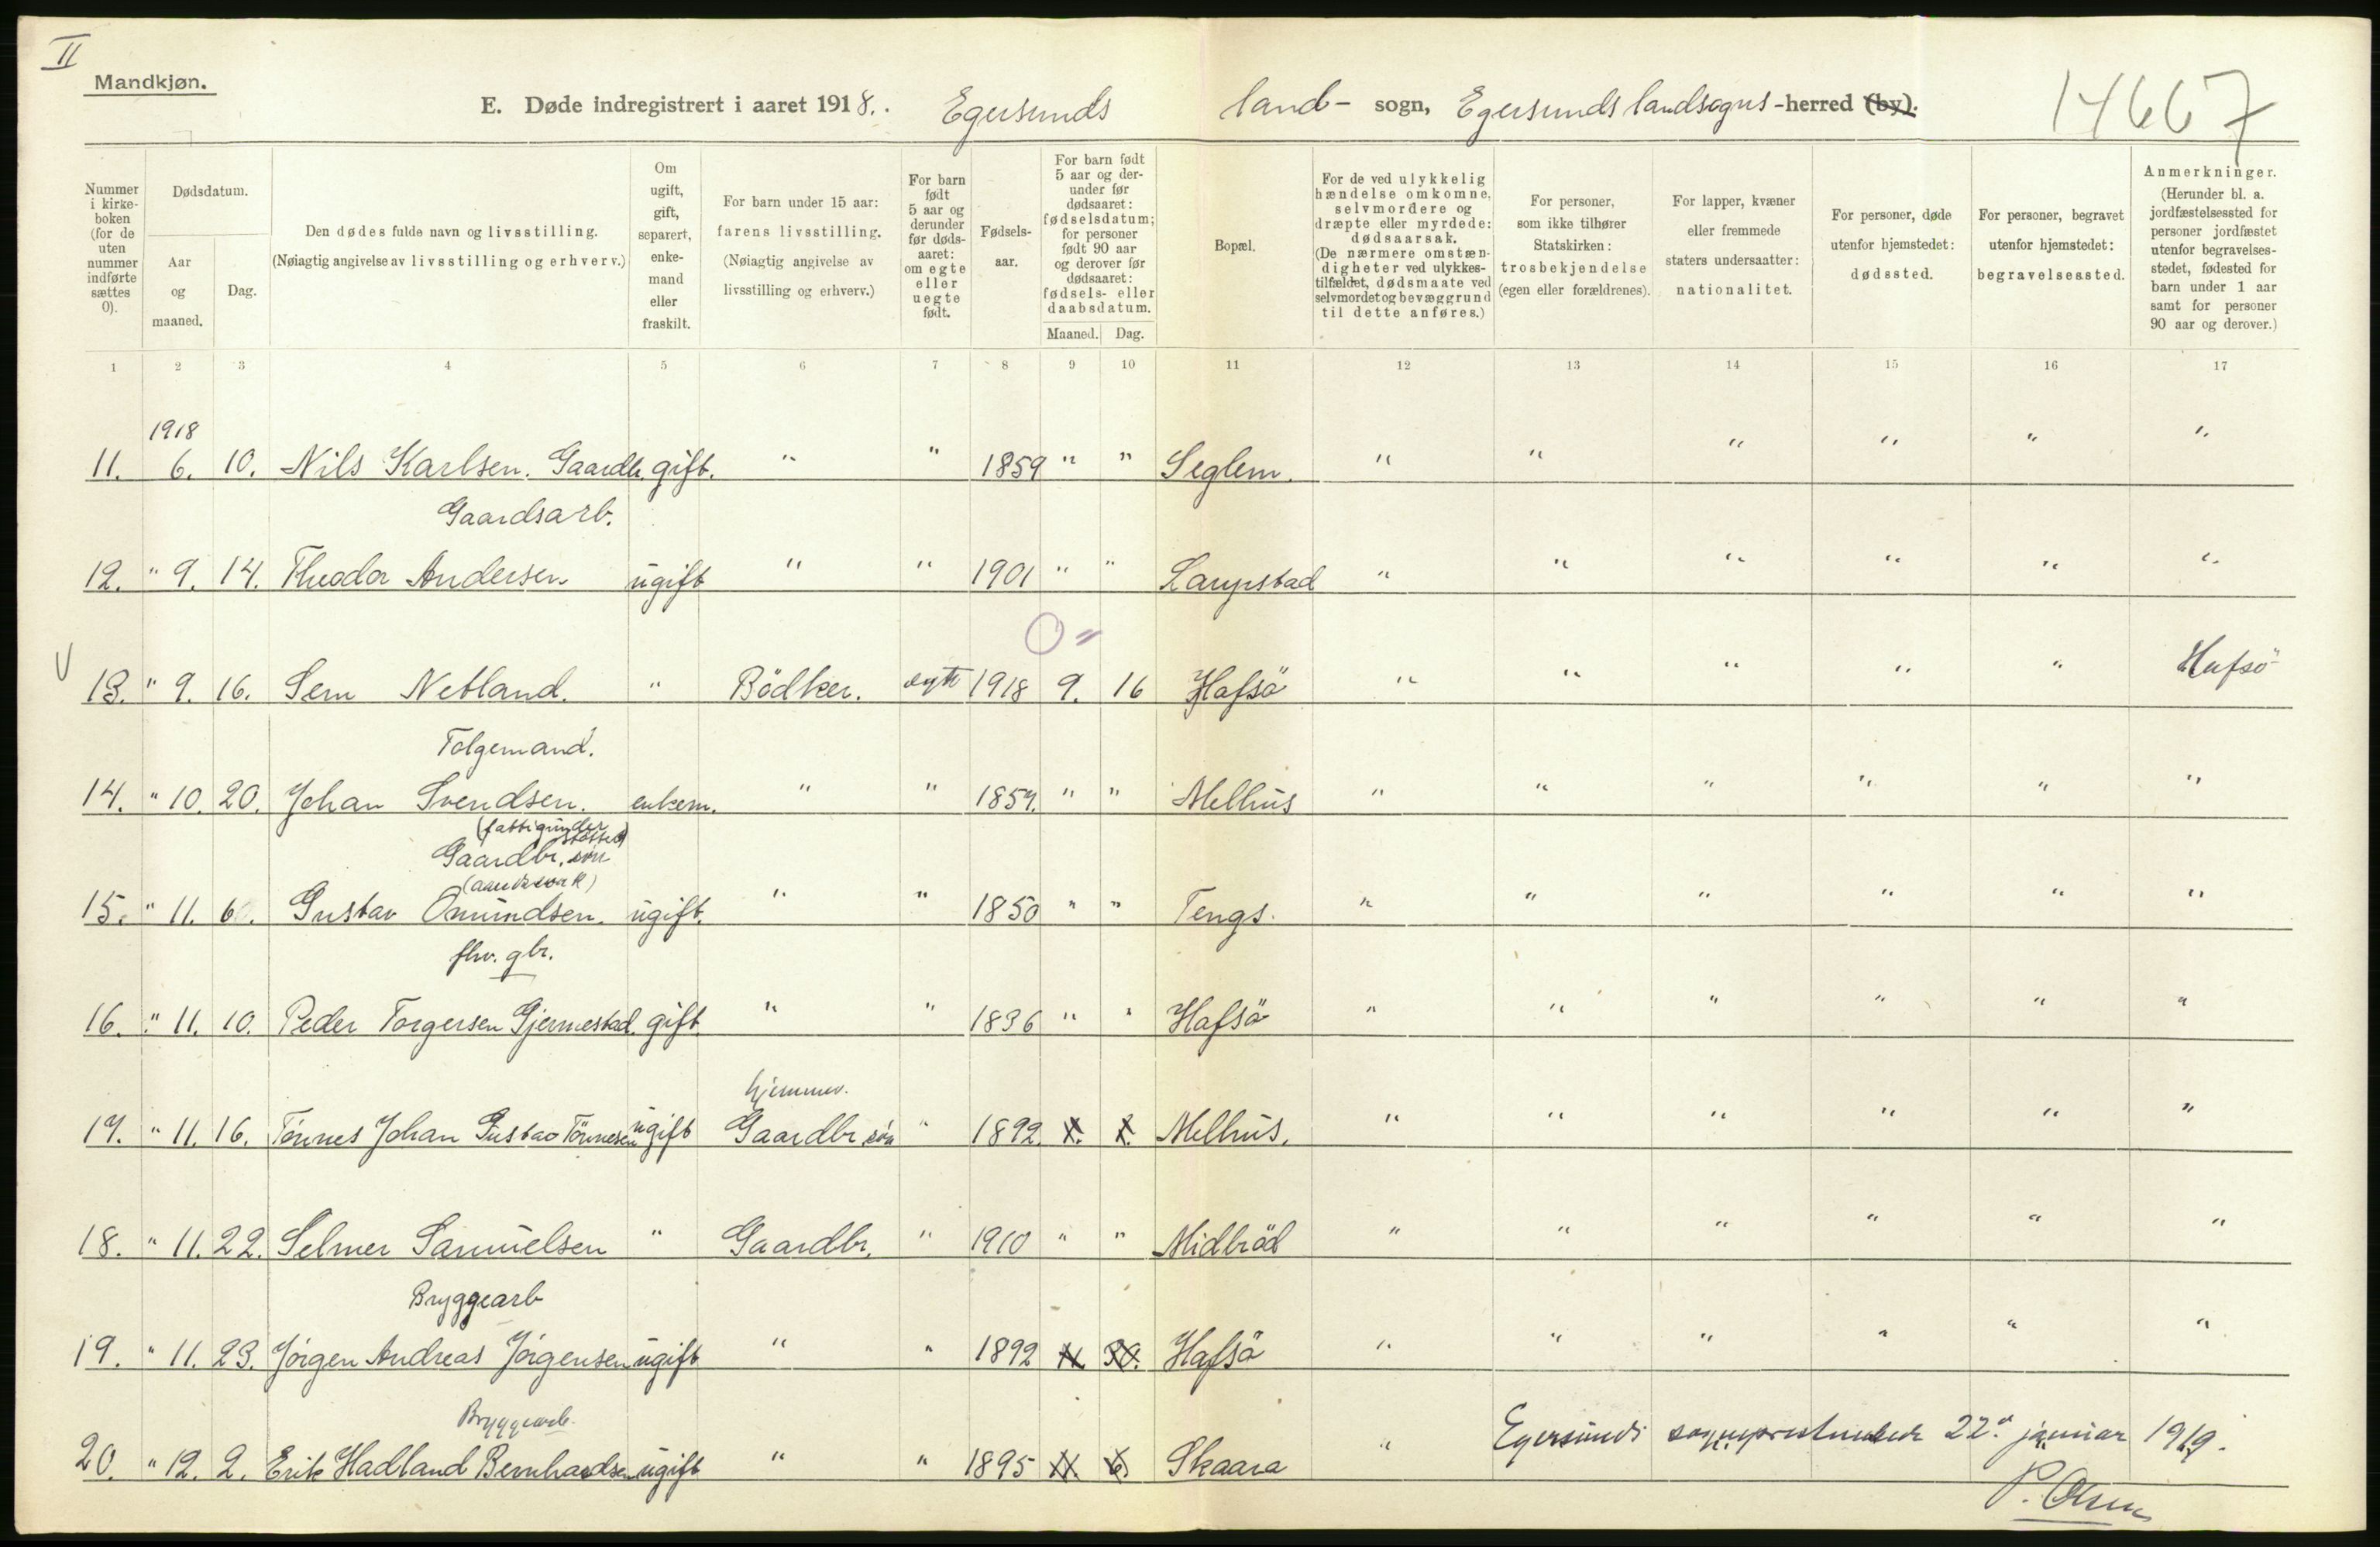 II
Mandkjøn.
E. Døde indregistrert i aaret 1918. Egersunds land- sogn, Egersunds landsogns -herred (by).
14667
Nummer i kirke-boken (for de uten nummer indførte sættes 0).
Dødsdatum.
Aar og maaned.
Dag.
Den dødes fulde navn og livsstilling. (Nøiagtig angivelse av livsstilling og erhverv.)
Om ugift, gift, separert, enke-mand eller fraskilt.
For barn under 15 aar: farens livsstilling. (Nøiagtig angivelse av livsstilling og erhverv.)
For barn født 5 aar og derunder før døds-aaret: om egte eller uegte født.
Fødsels-aar.
For barn født 5 aar og der-under før dødsaaret: fødselsdatum; for personer født 90 aar og derover før dødsaaret: fødsels- eller daabsdatum.
Maaned. Dag.
Bopæl.
For de ved ulykkelig hændelse omkomne, selvmordere og dræpte eller myrdede: dødsaarsak. (De nærmere omstæn-digheter ved ulykkes-tilfældet, dødsmaate ved selvmordet og bevæggrund til dette anføres.)
For personer, som ikke tilhører Statskirken: trosbekjendelse (egen eller forældrenes).
For lapper, kvæner eller fremmede staters undersaatter: nationalitet.
For personer, døde utenfor hjemstedet: dødssted.
For personer, begravet utenfor hjemstedet: begravelsessted.
Anmerkninger. (Herunder bl. a. jordfæstelsessted for personer jordfæstet utenfor begravelses-stedet, fødested for barn under 1 aar samt for personer 90 aar og derover.)
1 2 3 4 5 6 7 8 9 10 11 12 13 14 15 16 17
1918
11. 6. 10. Nils Karlsen. Gaardb. gift. " " 1859 " " Seglem. " " " " " "
Gaardsarb.
12. " 9. 14. Theodor Andersen ugift " " 1901 " " Laupstad " " " " " "
0 "
V 13. " 9. 16. Sem Netland. " Bödker. egte 1918 9. 16 Hafsö " " " " " Hafsö
Folgemand.
14. " 10. 20. Johan Svendsen. enkem. " " 1857. " " Melhus " " " " " "
(fattigunderstøttet)
Gaardbr. søn
(aandssvak)
15. " 11. 6. Gustav Omundsen. ugift. " " 1850 " " Tengs. " " " " " "
fhv. gbr.
16. " 11. 10. Peder Torgersen Gjermestad. gift. " " 1836 " " Hafsö " " " " " "
hjemmev.
17. " 11. 16. Tönnes Johan Gustav Tönnesen ugift Gaardbr. søn " 1892. Melhus. " " " " " "
18. " 11. 22. Selmer Samuelsen " Gaardbr. " 1910 " " Midbröd " " " " " "
Bryggearb
19. " 11. 23. Jörgen Andreas Jörgensen ugift " " 1892 11 30. Hafsö " " " " " "
Bryggearb.
20. " 12. 2. Erik Hadland Bernhardsen ugift " " 1895 11. 6. Skaara "
Egersunds sogneprestembede 22. januar 1919.
P. Olsen